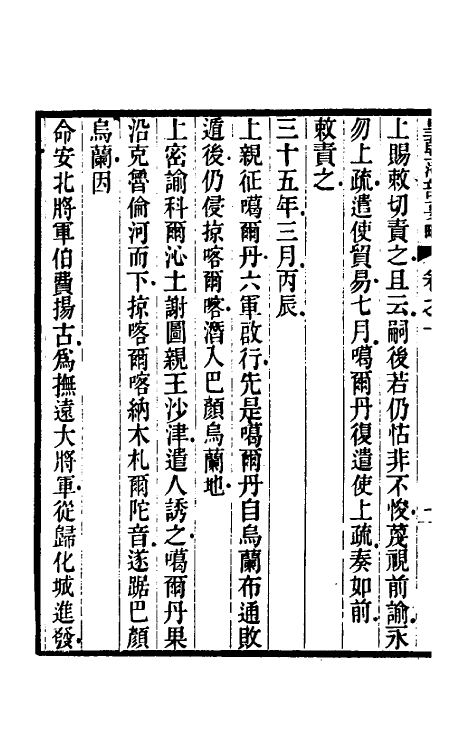 上賜敕切責之且云嗣後若仍怙非不悛蔑視前諭永
勿上疏遣使貿易七月噶爾丹復遣使上疏奏如前
敕責之
三十五年三月丙辰
上親征噶爾丹六軍啟行先是噶爾丹自烏蘭布通敗
遁後仍侵掠喀爾喀潛入巴顏烏蘭地
上密諭科爾沁土謝圖親王沙津遣人誘之噶爾丹果
沿克魯倫河而下掠喀爾喀納木札爾陀音遂踞巴顏
烏蘭因
命安北將軍伯費揚古為撫遠大將軍從歸化城進發